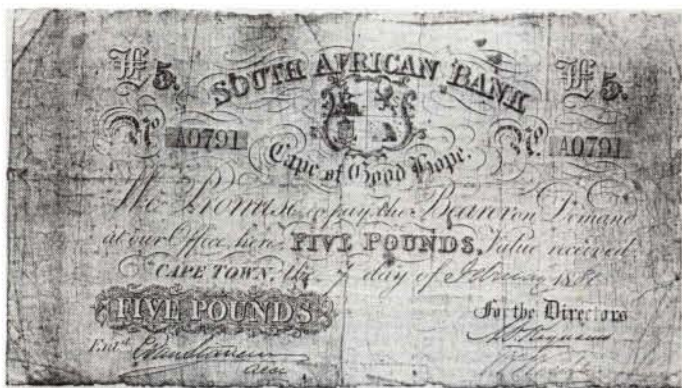 £5. SOUTH AFRICAN BANK £5.
No. A0791 No. A0791
Cape of Good Hope.
We Promise to pay the Bearer on Demand
at our Office here FIVE POUNDS, Value received.
CAPE TOWN, the 7 day of February
FIVE POUNDS For the Directors
Entd.